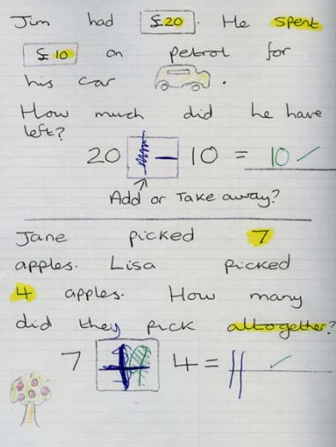 Jim had £20. He spent
£10 on petrol for
his car.
How much did he have
left?
20 - 10 = 10 ✓
Add or Take away?
Jane picked 7
apples. Lisa picked
4 apples. How many
did they pick altogether?
7 + 4 = 11 ✓